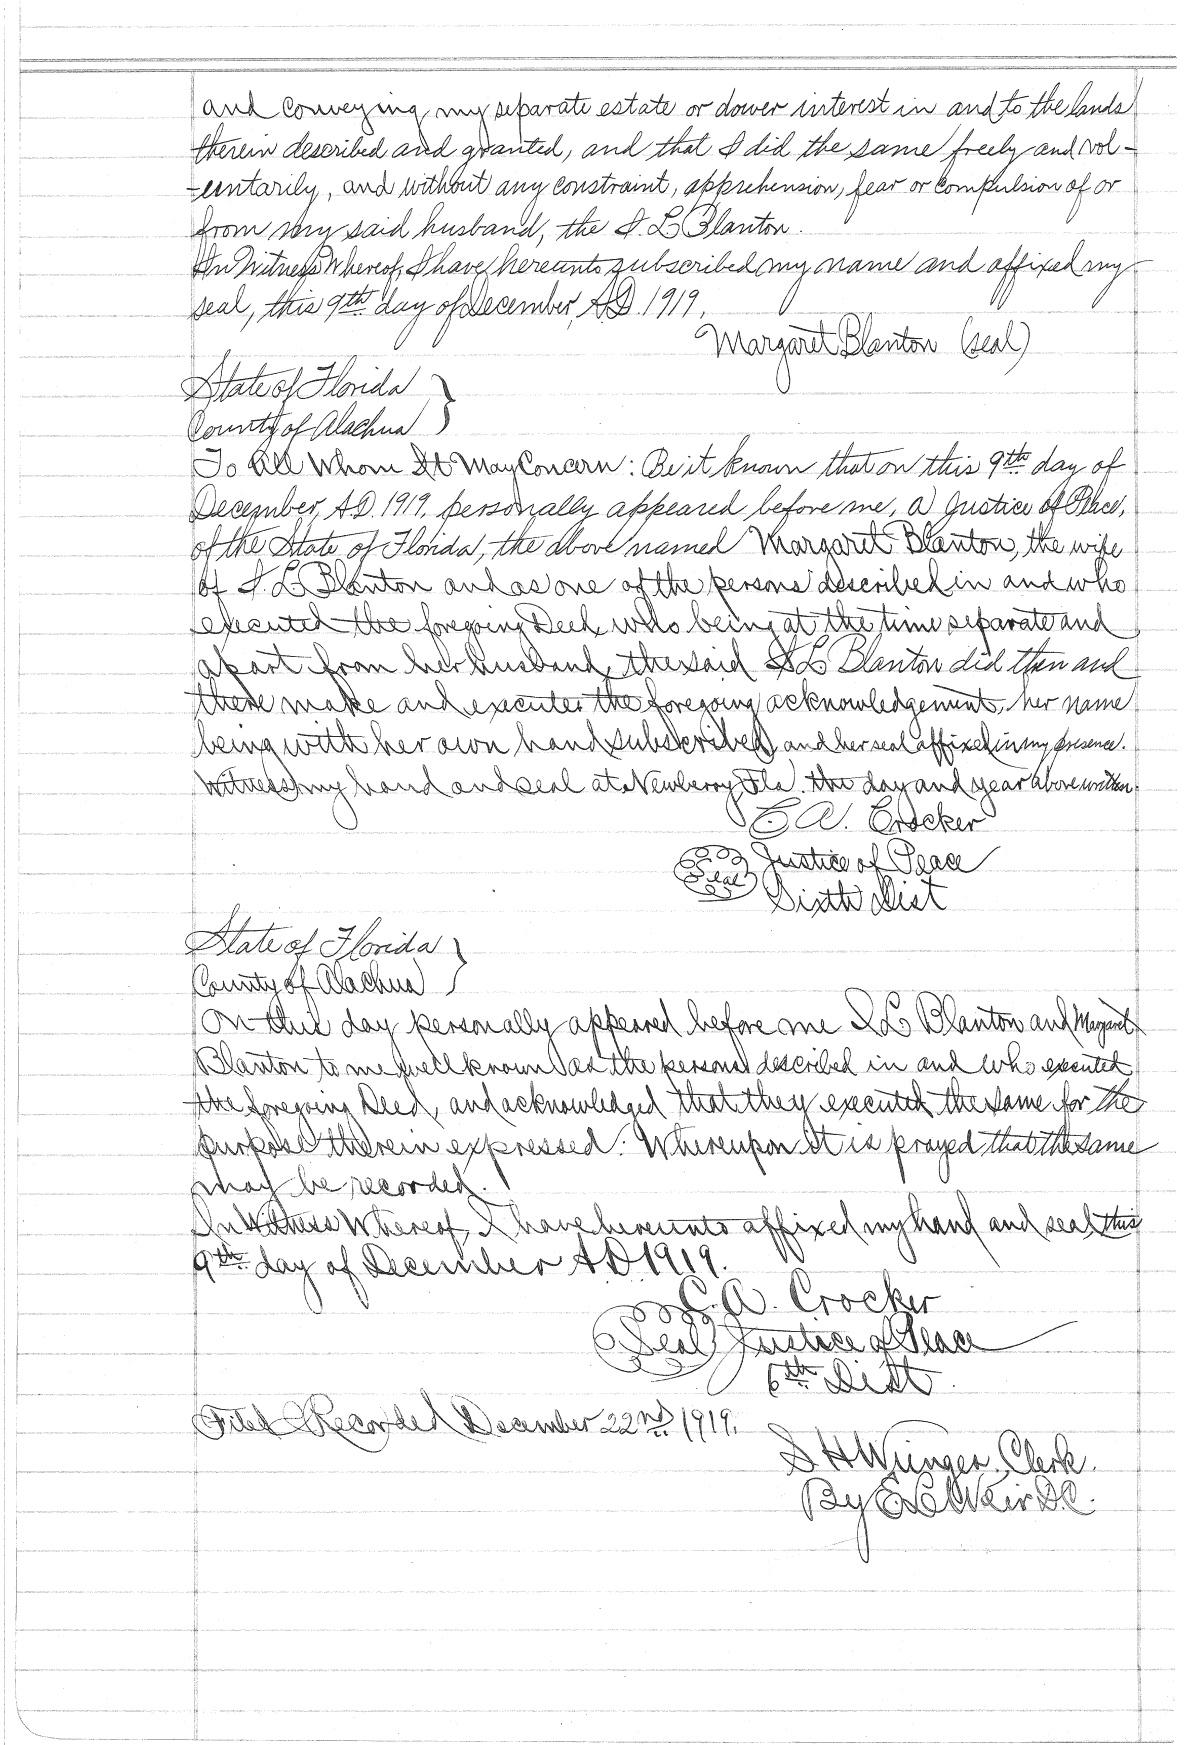 and conveying my separate estate or dower interest in and to the lands
therein described and granted, and that I did the same freely and vol-
-euntarily, and without any constraint, apprehension, fear or compulsion of or
from my said husband, the I. L Blanton.
In Witness Whereof, I have hereunto subscribed my name and affixed my
seal, this 9th day of December, A.D. 1919.
Margaret Blanton (seal)
State of Florida }
County of Alachua
To All Whom It May Concern: Be it known that on this 9th day of
December, A.D. 1919, personally appeared before me, a Justice of Peace,
of the State of Florida, the above named Margaret Blanton, the wife
of I. L Blanton and as one of the persons described in and who
executed the foregoing Deed, who being at the time separate and
apart from her husband, the said I L Blanton did then and
there make and executes the foregoing acknowledgement, her name
being with her own hand subscribed, and her seal affixed in my presence.
Witness my hand and seal at Newberry, Fla. the day and year above written
C A. Crocker
Seal Justice of Peace
Sixth Dist
State of Florida }
County of Alachua
On this day personally appeared before me I L Blanton and Margaret
Blanton to me well known as the persons described in and who executed
the foregoing Deed, and acknowledged that they executed the same for the
purpose therein expressed. Whereupon it is prayed that the same
may be recorded.
In Witness Whereof, I have hereunto affixed my hand and seal this
9th day of December A D 1919.
C. A. Crocker
Seal Justice of Peace
6th Dist.
Filed & Recorded December 22nd 1919.
S H Wienges, Clerk.
By E L Weir D.C.